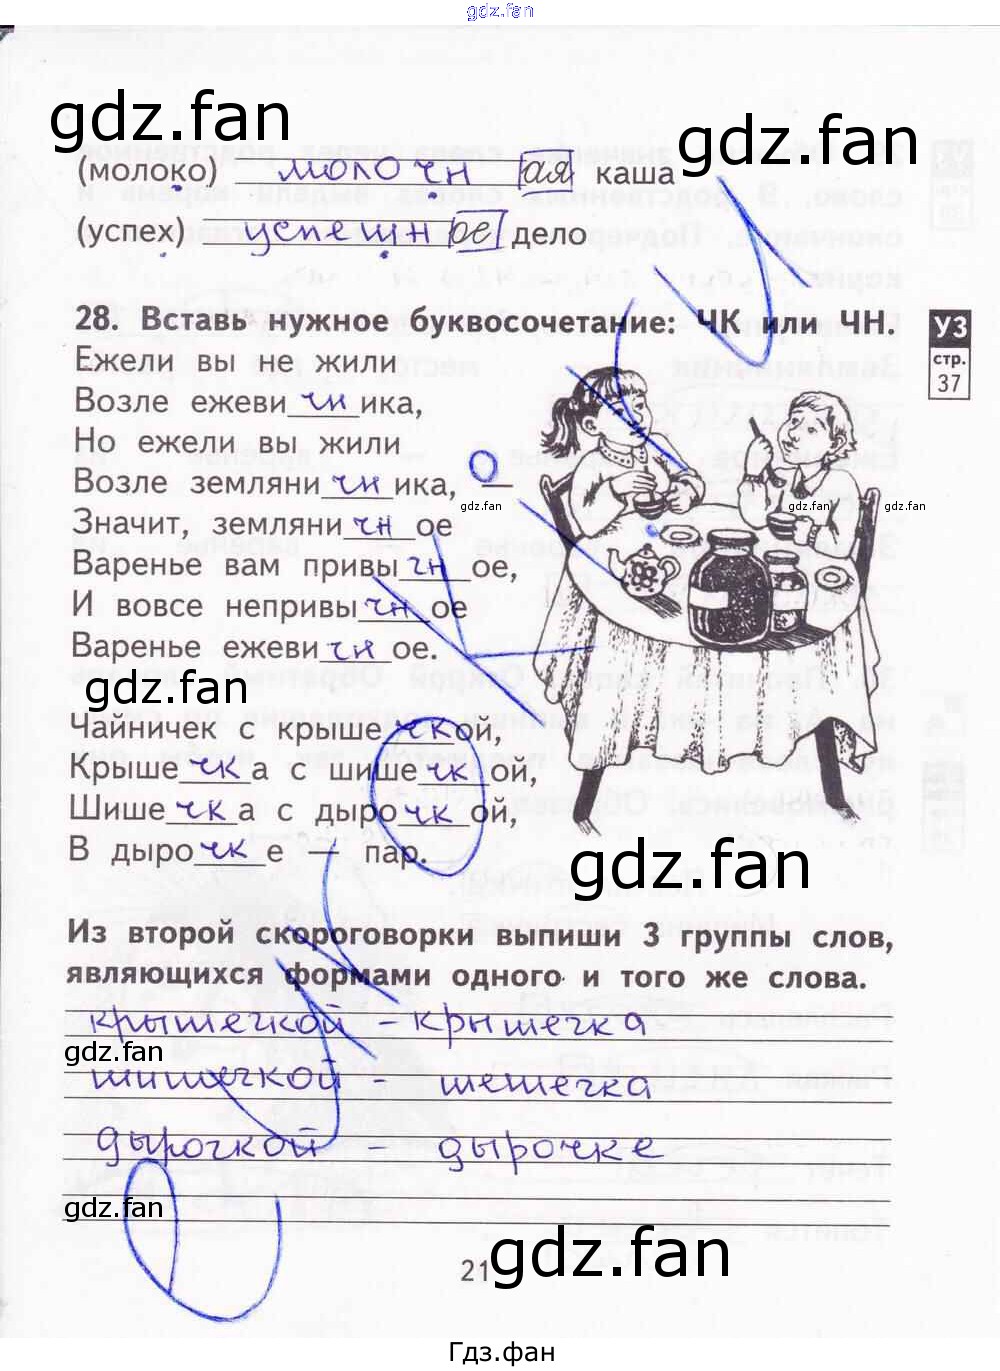 gdz.fan
gdz.fan
gdz.fan
(молоко) молочн ая каша
(успех) успешн ое дело
28. Вставь нужное буквосочетание: ЧК или ЧН.
УЗ
стр.
37
Ежели вы не жили
Возле ежеви чн ика,
Но ежели вы жили
Возле земляни чн ика, —
gdz.fan
gdz.fan
gdz.fan
Значит, земляни чн ое
Варенье вам привы чн ое,
И вовсе непривы чн ое
Варенье ежеви чн ое.
gdz.fan
Чайничек с крыше чк ой,
Крыше чк а с шише чк ой,
Шише чк а с дыро чк ой,
В дыро чк е — пар.
gdz.fan
Из второй скороговорки выпиши 3 группы слов,
являющихся формами одного и того же слова.
крышечкой – крышечка
gdz.fan
шишечкой – шешечка
дырочкой – дырочке
gdz.fan
gdz.fan
21
Гдз.фан